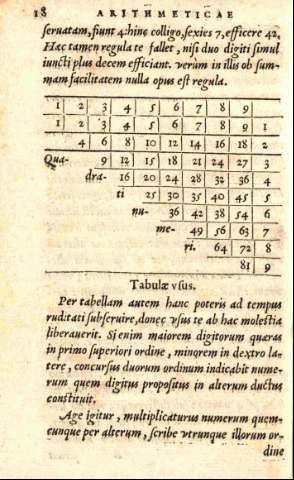 18 ARITHMETICAE
seruatam, fiunt 4: hinc colligo, sexies 7, efficere 42.
Hac tamen regula te fallet, nisi duo digiti simul
iuncti plus decem efficiant. verùm in illis ob sum-
mam facilitatem nulla opus est regula.
1 2 3 4 5 6 7 8 9
1 2 3 4 5 6 7 8 9 1
4 6 8 10 12 14 16 18 2
Qua- 9 12 15 18 21 24 27 3
dra- 16 20 24 28 32 36 4
ti 25 30 35 40 45 5
nu- 36 42 38 54 6
me- 49 56 63 7
ri. 64 72 8
81 9
Tabulæ vsus.
Per tabellam autem hanc poteris ad tempus
ruditati subseruire, donec vsus te ab hac molestia
liberauerit. Si enim maiorem digitorum quæras
in primo superiori ordine, minorem in dextro la-
tere, concursus duorum ordinum indicabit nume-
rum quem digitus propositus in alterum ductus
constituit.
Age igitur, multiplicaturus numerum quem-
cunque per alterum, scribe vtrunque illorum or-
dine